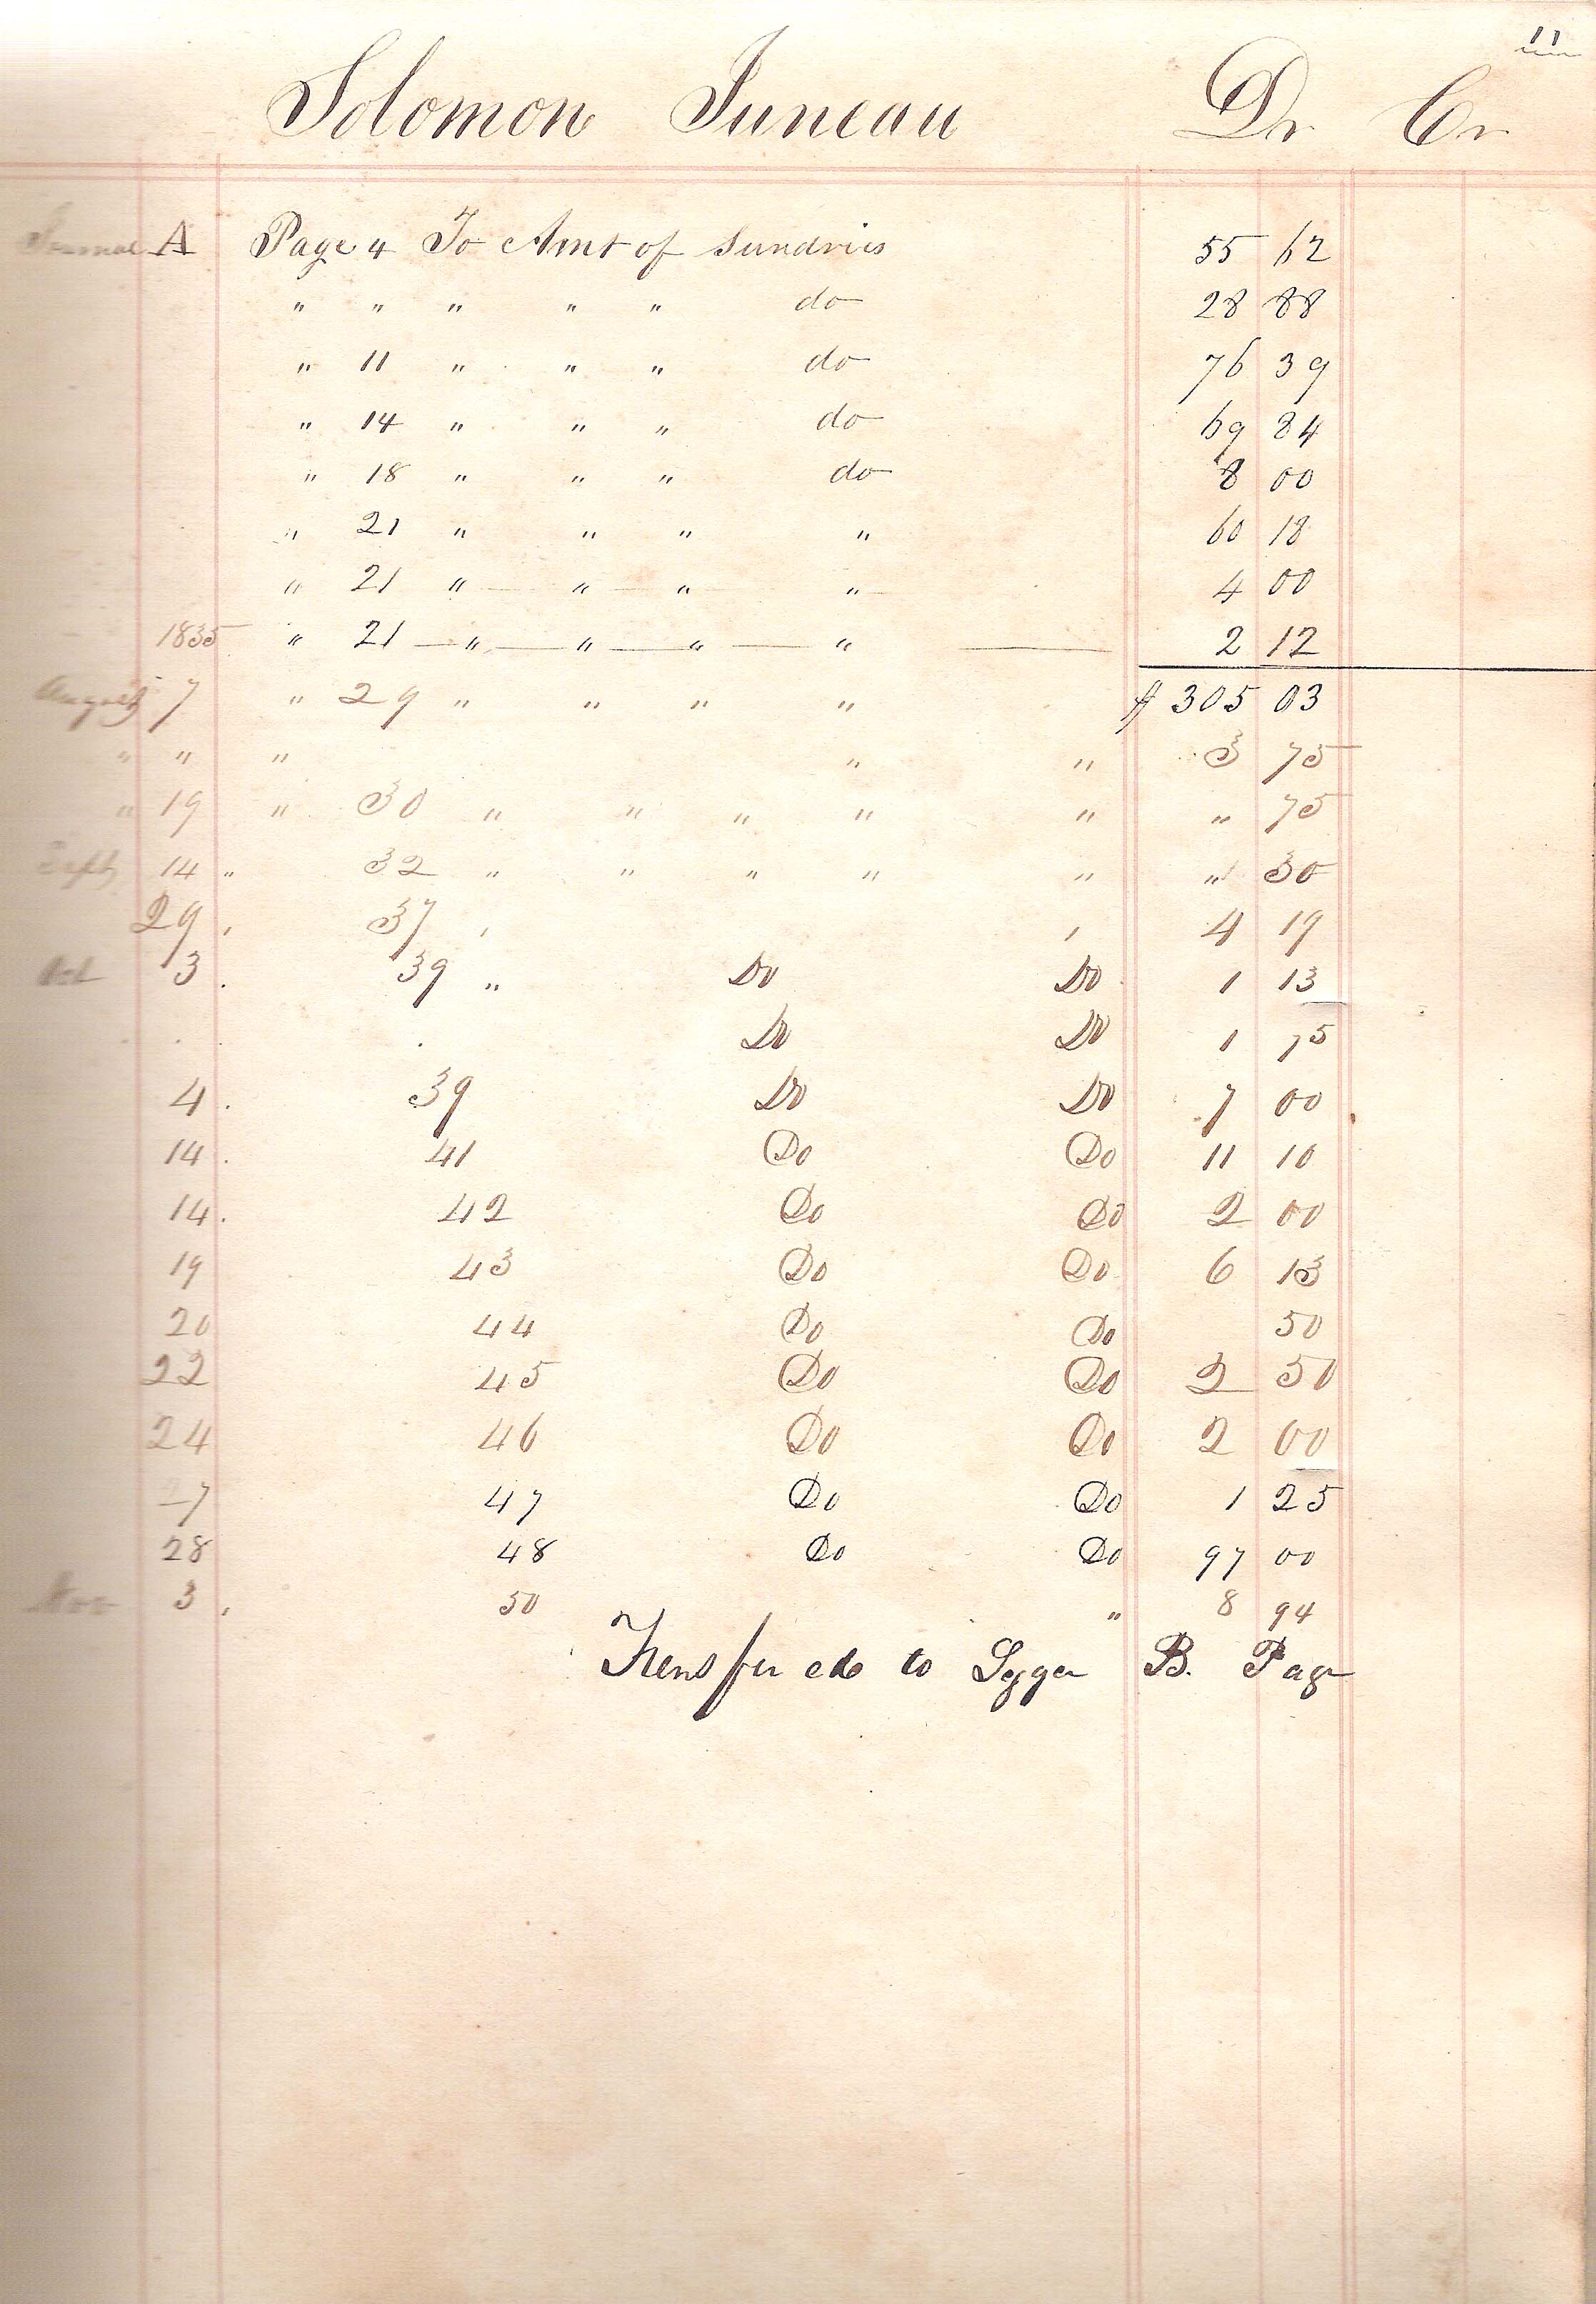 11
Solomon Juneau Dr Cr
Journal A Page 4 To Amt of Sundries 55 62
" " " " " do 28 88
" 11 " " " do 76 39
" 14 " " " do 69 84
" 18 " " " do 8 00
" 21 " " " " 60 18
" 21 " " " " 4 00
1835 " 21 " " " " 2 12
August 7 " 29 " " " " $ 305 03
" " " " " 3 75
" 19 " 30 " " " " " " 75
Sept 14 " 32 " " " " " " 30
29 , 37 , , 4 19
Oct 3 . 39 " Do Do 1 13
. . . . Do Do 1 75
4 . 39 Do Do 7 00
14 . 41 Do Do 11 10
14 . 42 Do Do 2 00
19 43 Do Do 6 13
20 44 Do Do 50
22 45 Do Do 2 50
24 46 Do Do 2 00
27 47 Do Do 1 25
28 48 Do Do 97 00
Nov 3 . 50 " 8 94
to B. Page